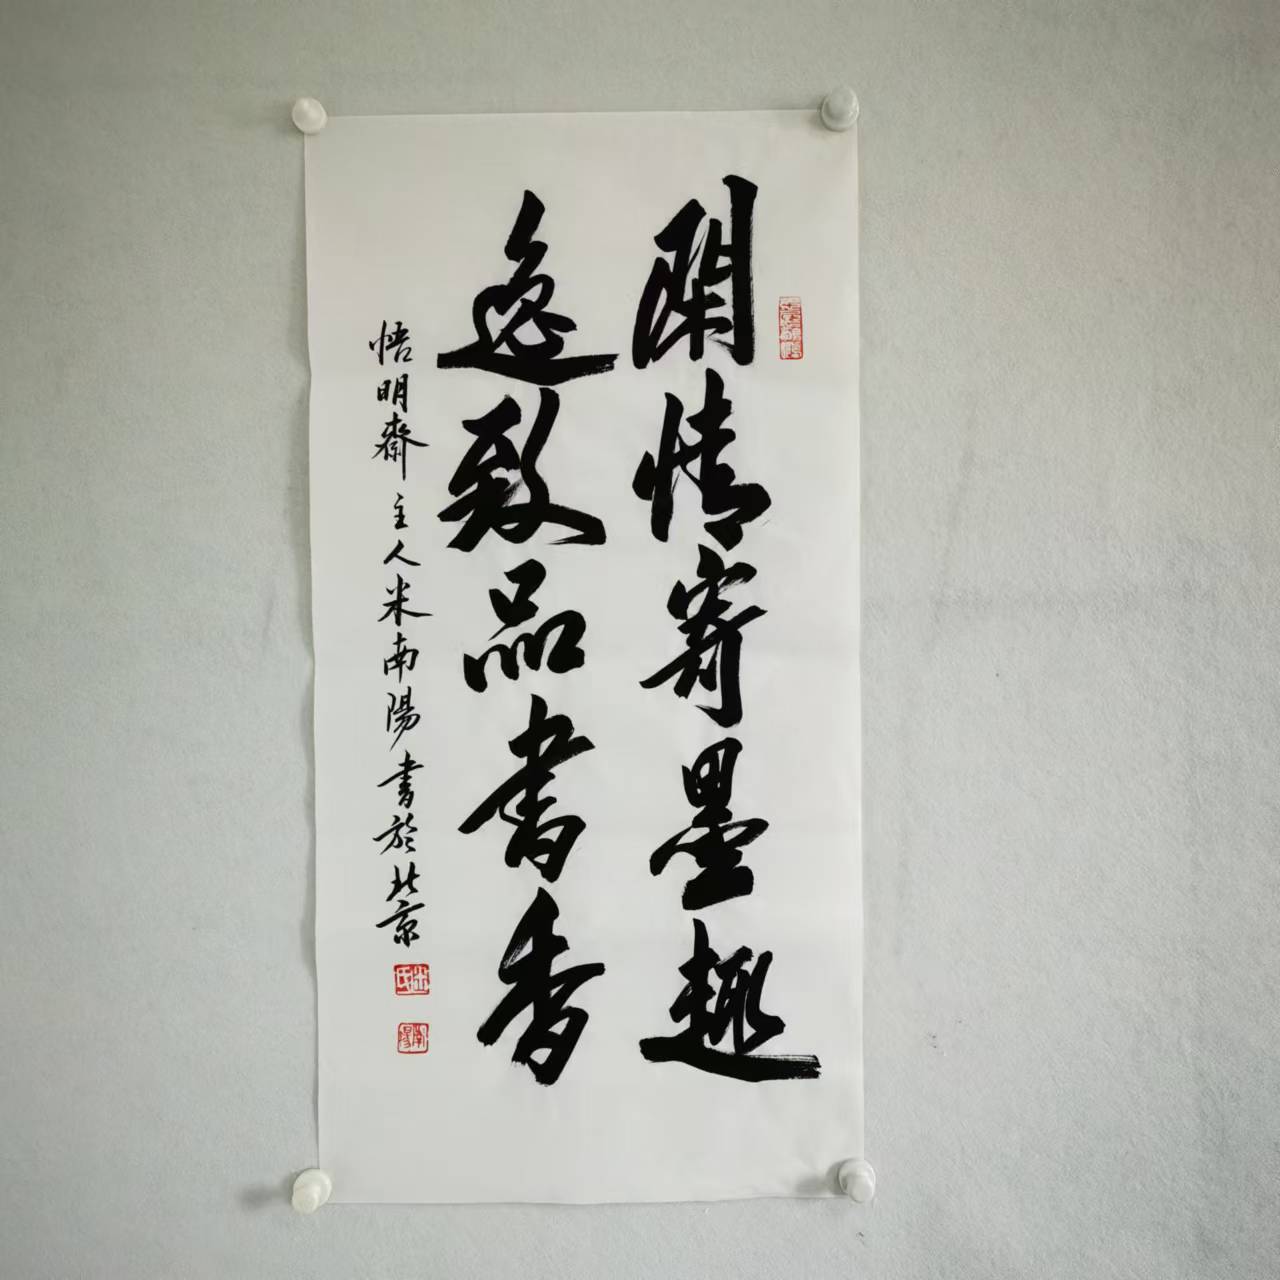 閑情寄墨趣
逸致品書香
悟明齋主人米南陽書於北京
米氏
南陽